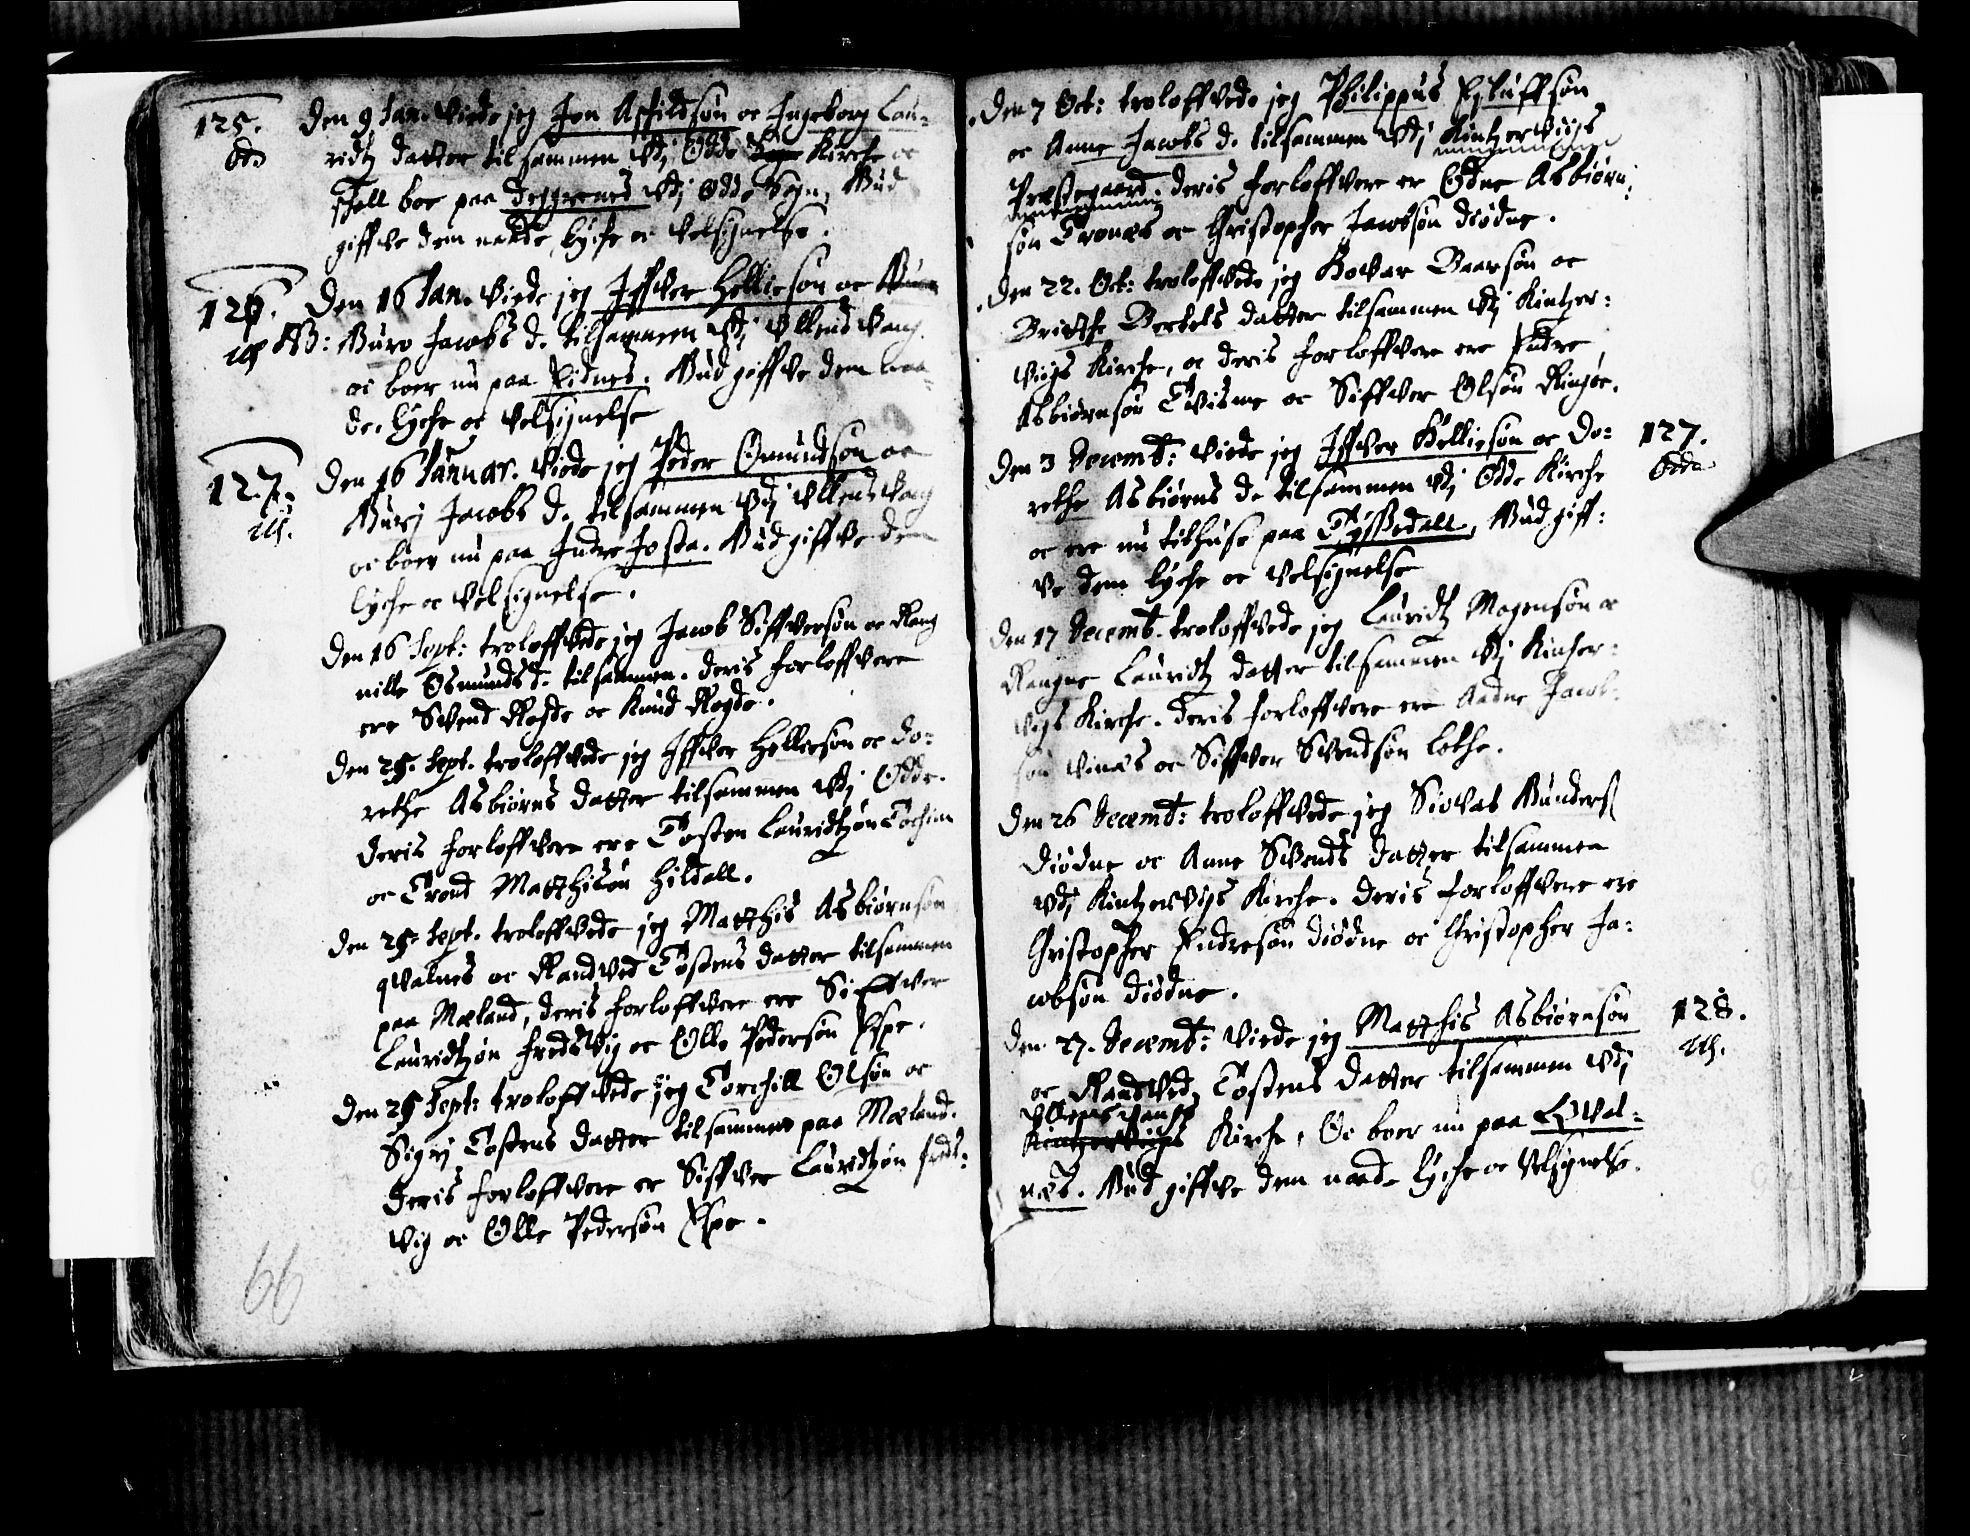 125.
Odd
Den 9 Jan. Viede jeg Jon Aschildsøn oc Ingeborg Lau-
ridtz datter tilsammen Vdj Odde Kirche oc
schall boe paa Degrenes Vdj Odde Sogn, Gud
giffve dem naade, lyche oc Velsignelse.
126.
Ull
Den 16 Jan. Viede jeg Iffver Helliesøn oc
NB: Guro Jacobs d. tilsammen Vdj Ullend Vang
oc boer nu paa Eidnes. Gud giffve dem naa-
de, lyche oc Velsignelse
127.
Ull.
Den 16 Januar. Viede jeg Peder Omundsøn oc
Gurj Jacobs d. tilsammen Vdj Ullends Vang
oc boer nu paa Indre Josta. Gud giffve dem
lyche oc Velsignelse.
Den 16 Sept: troloffvede jeg Jacob Siffversøn oc Rang
nille Osmunds d. tilsammen. deris forloffvere
ere Svend Regde oc Knud Regde.
Den 25. Sept. troloffvede jeg Iffver Helliesøn oc Do-
rethe Asbiørns datter tilsammen Vdj Odde.
deris forloffvere ere Tosten Lauridtzøn Tochim
oc Trond Matthisøn Hildall.
Den 25. Sept. troloffvede jeg Matthis Asbiørnsøn
qvalnes oc Randved Tostens datter tilsammen
paa Meland, deris forloffvere ere Siffver
Lauridtzøn fredsvig oc Olle Pedersøn Espe.
Den 25 Sept: troloffvede jeg Torchill Olsøn oc
Sigrj Tostens datter tilsammen paa Meland.
deris forloffvere er Siffver Lauridtzøn freds-
vig oc Olle Pedersøn Espe.
66
Den 7 Oct: troloffvede jeg Philippus Eiluffsøn
oc Anne Jacobs d. tilsammen Vdj Kintzervigs
Præstegaard. deris forloffvere er Odne Asbiørn-
søn Tronæs oc Christopher Jacobsøn diødne.
Den 22. Oct: troloffvede jeg Hovar Baarsøn oc
Britthe Bertels datter tilsammen Vdj Kintzer-
viigs Kirche, oc deris forloffvere ere Endre
Asbiørnsøn Tvisme oc Siffver Olsøn Ringøe.
127.
Odde
Den 3 Decemb: Viede jeg Iffver Helliesøn oc Do-
rethe Asbiørns d. tilsammen Vdj Odde Kirche
oc ere nu tilhuse paa Tyssedall, Gud giff-
ve dem lyche oc Velsignelse
Den 17 Decemb. troloffvede jeg Lauridtz Mogensøn oc
Rangne Lauridtz datter tilsammen Vdj Kintzer-
vigs Kirche. deris forloffvere ere Aadne Jacob-
søn Vinæs oc Siffver Svendsøn Lothe.
Den 26 Decemb: troloffvede jeg Siovat Gunders
diødne oc Anne Svends datter tilsammen
Vdj Kintzervigs Kirche. deris forloffvere ere
Christopher Endresøn diødne oc Christopher Ja-
cobsøn diødne.
128.
Ull.
Den 27. Decemb: Viede jeg Matthis Asbiørnsøn
oc Randved Tostens datter tilsammen Vdj
Ullensvangs
Kintzerviigs Kirche, Oc boer nu paa Qval-
næs. Gud giffve dem naade lyche oc Velsignelse.